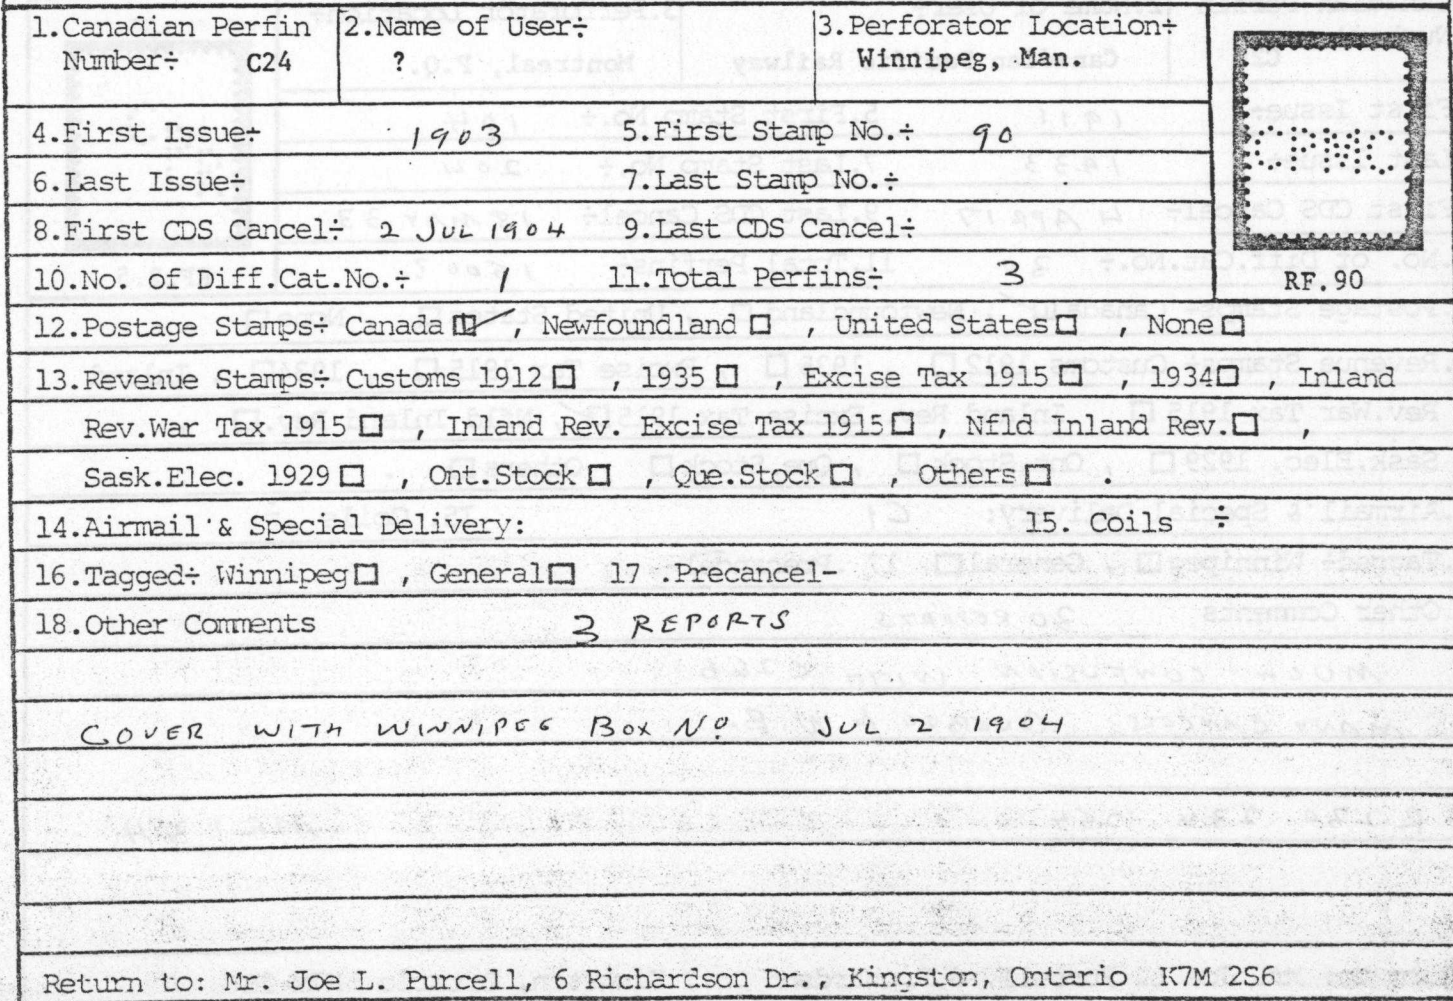 1.Canadian Perfin 2.Name of User÷ 3.Perforator Location÷
Number÷ C24 ? Winnipeg, Man.
4.First Issue÷ 1903 5.First Stamp No.÷ 90
6.Last Issue÷ 7.Last Stamp No.÷
8.First CDS Cancel÷ 2 JUL 1904 9.Last CDS Cancel÷
10.No. of Diff.Cat.No.÷ 1 11.Total Perfins÷ 3 RF.90
12.Postage Stamps÷ Canada ☑ , Newfoundland □ , United States □ , None □
13.Revenue Stamps÷ Customs 1912 □ , 1935 □ , Excise Tax 1915 □ , 1934 □ , Inland
Rev.War Tax 1915 □ , Inland Rev. Excise Tax 1915 □ , Nfld Inland Rev. □ ,
Sask.Elec. 1929 □ , Ont.Stock □ , Que.Stock □ , Others □ .
14.Airmail & Special Delivery: 15. Coils ÷
16.Tagged÷ Winnipeg □ , General □ 17 .Precancel-
18.Other Comments 3 REPORTS
COVER WITH WINNIPEG BOX No JUL 2 1904
Return to: Mr. Joe L. Purcell, 6 Richardson Dr., Kingston, Ontario K7M 2S6